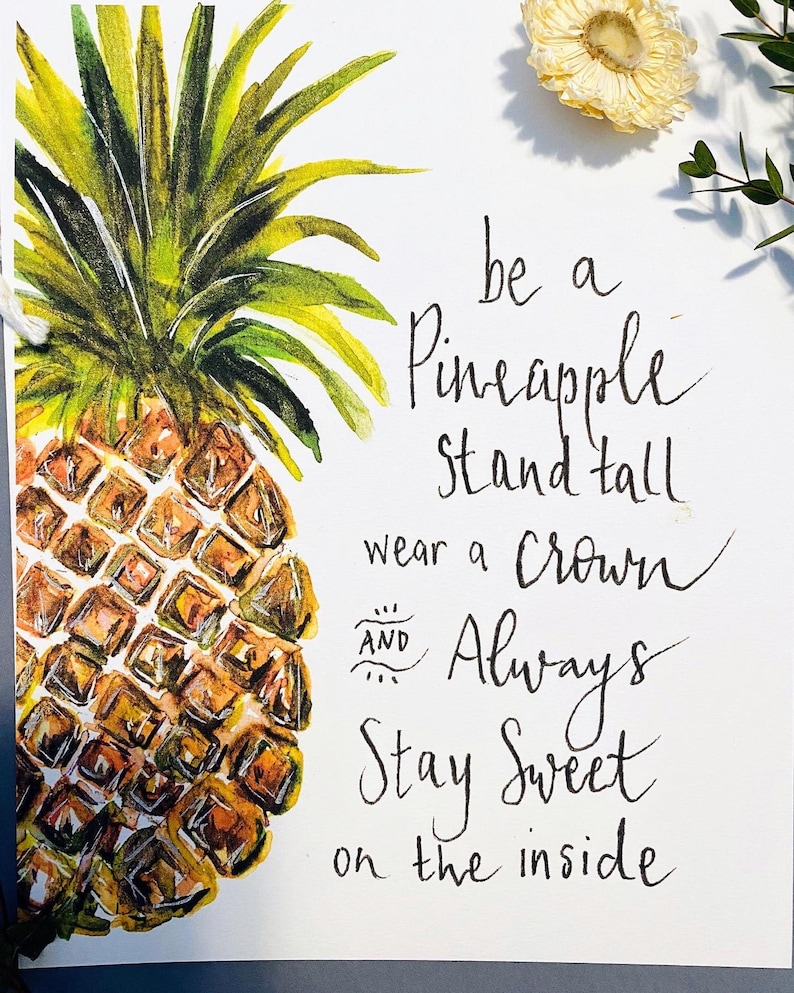 be a
Pineapple
Stand tall
wear a crown
AND Always
Stay Sweet
on the inside